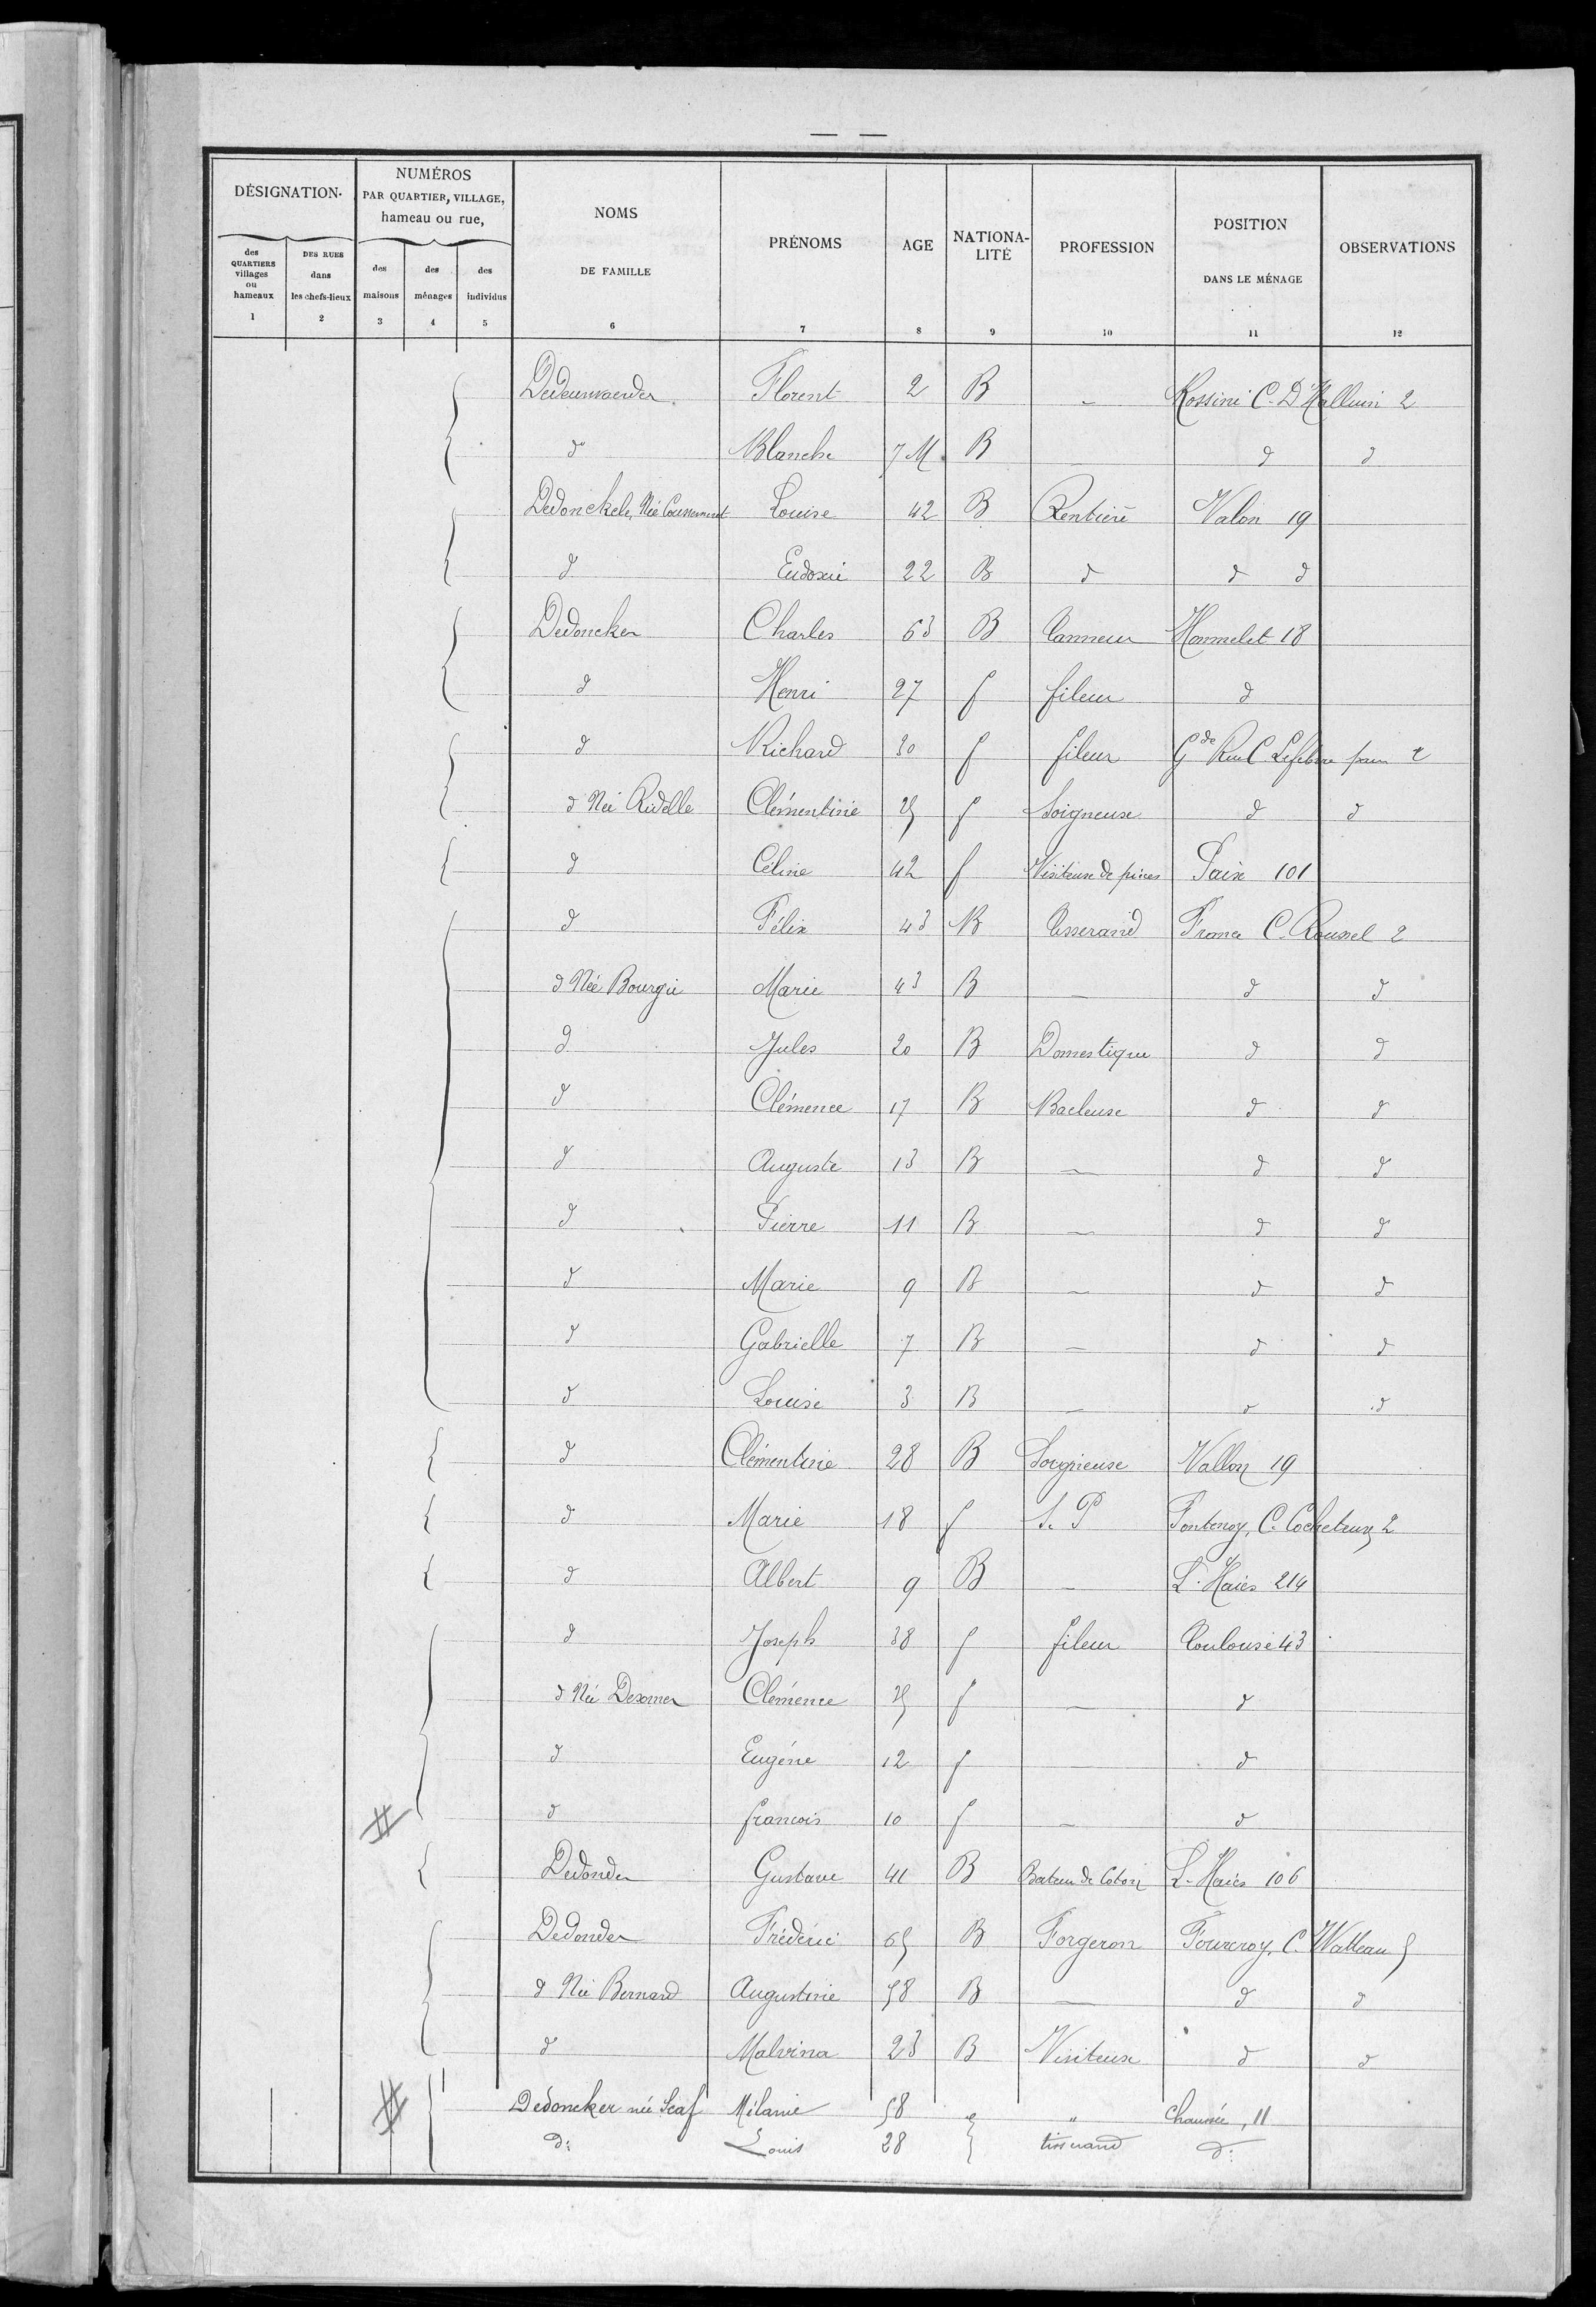 — —
DÉSIGNATION. NUMÉROS PAR QUARTIER, VILLAGE, hameau ou rue, NOMS DE FAMILLE PRÉNOMS AGE NATIONA-LITÉ PROFESSION POSITION DANS LE MÉNAGE OBSERVATIONS
des QUARTIERS villages ou hameaux DES RUES dans les chefs-lieux des maisons des ménages des individus
1 2 3 4 5 6 7 8 9 10 11 12
Florent 2 B — Rossini C. D'Halluin 2
d° Blanche 7 M B — d d
Dedonckele, Née Louise 42 B Rentière Valon 19
d Eudoxie 22 B d d d
Dedoncker Charles 63 B Hommelet 18
d Henri 27 f fileur d
d Richard 30 f fileur Gde Rue C Lefebvre
d Née Ridelle Clémentine f Soigneuse d d
d Céline 42 f Visiteuse de pièces Paix 101
d Félix 43 B Tisserand France C. Roussel 2
d Née Bourgie Marie 43 B — d d
d Jules 20 B Domestique d d
d Clémence 17 B Bacleuse d d
d Auguste 13 B — d d
d Pierre 11 B — d d
d Marie 9 B — d d
d Gabrielle 7 B — d d
d Louise 3 B — d d
d Clémentine 28 B Soigneuse Vallon 19
d Marie 18 f S. P Fontenoy, C. Cocheteux 2
d Albert 9 B — L. Haies 214
d Joseph 38 f fileur Toulouse 43
d Née Clémence f — d
d Eugène 12 f — d
d francois 10 f — d
Dedonder Gustave 41 B Bateur de Coton L. Haies 106
Dedonder Frédéric 65 B Forgeron Fourcroy, C. Watteau 5
d Née Bernard Augustine 58 B — d d
d Malvina 23 B Visiteuse d d
Dedoncker née Scaf Mélanie 58 " chaussée, 11
d: Louis 28 tisserand d: